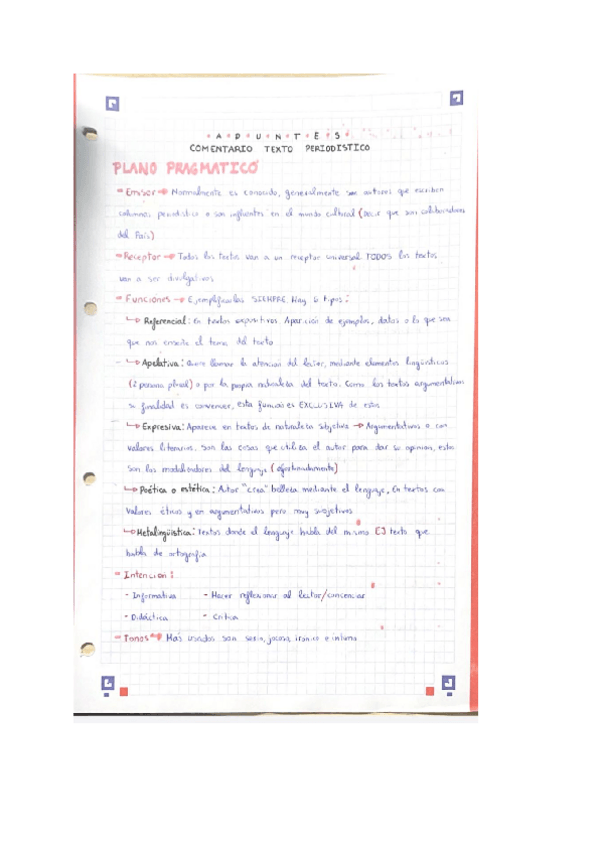 APUNTES
COMENTARIO TEXTO PERIODISTICO
PLANO PRAGMATICO
Emisor → Normalmente es conocido, generalmente son autores que escriben
columnas periodistica o son influentes en el mundo cultural (Decir que son colaboradores
del País)
Receptor → Todos los textos van a un receptor universal. TODOS los textos
van a ser divulgativos
Funciones → Ejemplificarlas SIEMPRE. Hay 6 tipos:
↳ Referencial: En textos expositivos. Aparición de ejemplos, datos o lo que sea
que nos enseña el tema del texto
↳ Apelativa: Quiere llamar la atención del lector, mediante elementos lingüísticos
(2 persona plural) o por la propia naturaleza del texto. Como los textos argumentativos
su finalidad es convencer, esta función es EXCLUSIVA de estos
↳ Expresiva: Aparece en textos de naturaleza subjetiva → Argumentativos o con
valores literarios. Son las cosas que utiliza el autor para dar su opinion, estos
son los modalizadores del lenguaje (afortunadamente)
↳ Poética o estética: Autor "crea" belleza mediante el lenguaje. En textos con
valores éticos y en argumentativos pero muy subjetivos
↳ Metalingüística: Textos donde el lenguaje habla del mismo [] texto que
habla de ortografía
Intencion:
- Informativa - Hacer reflexionar al lector/concienciar
- Didáctica - Crítica
Tonos → Más usados son serio, jocoso, ironico e intimo